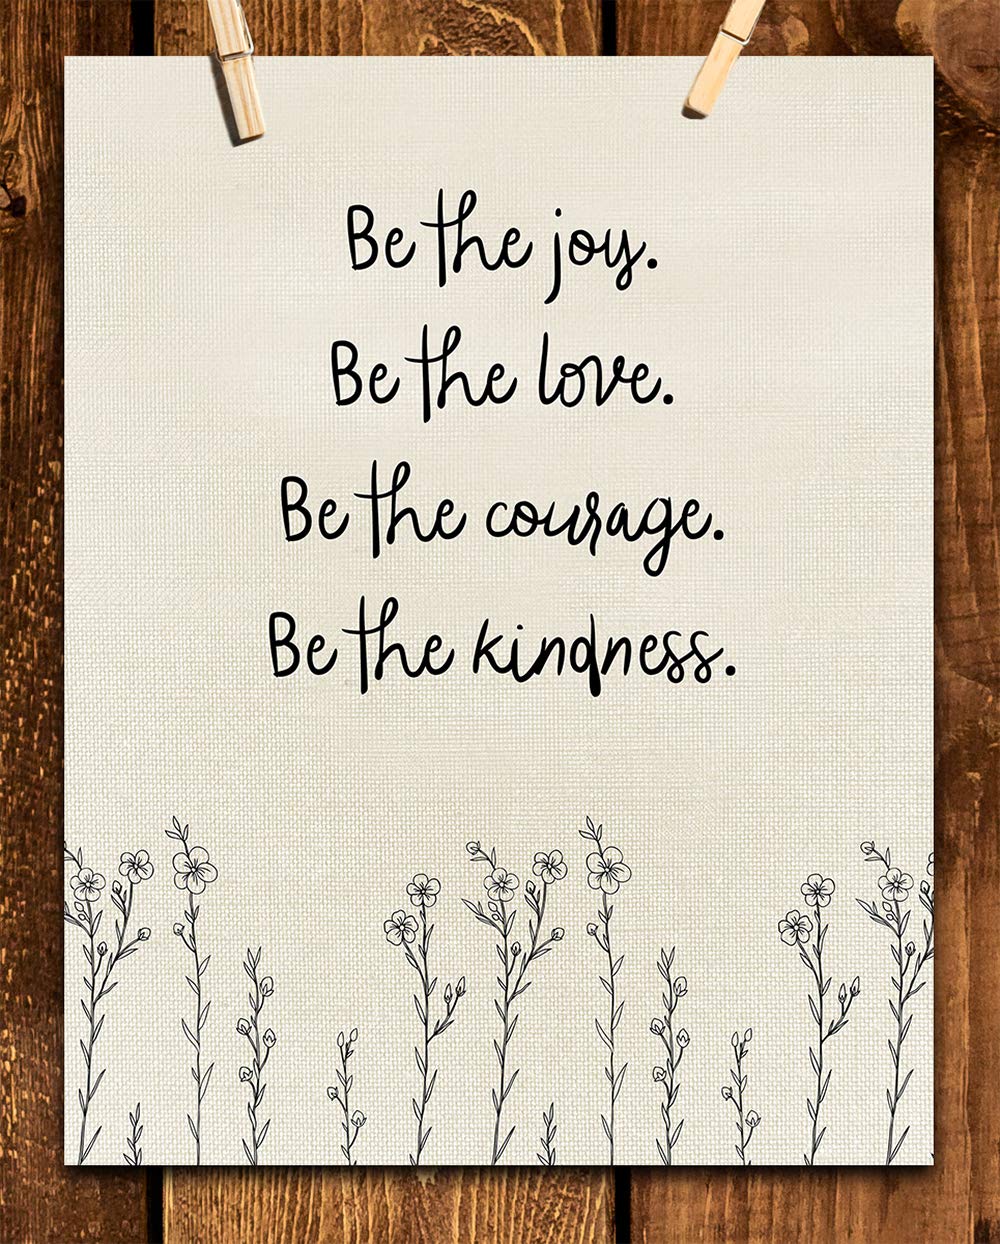 Be the joy.
Be the love.
Be the courage.
Be the kindness.